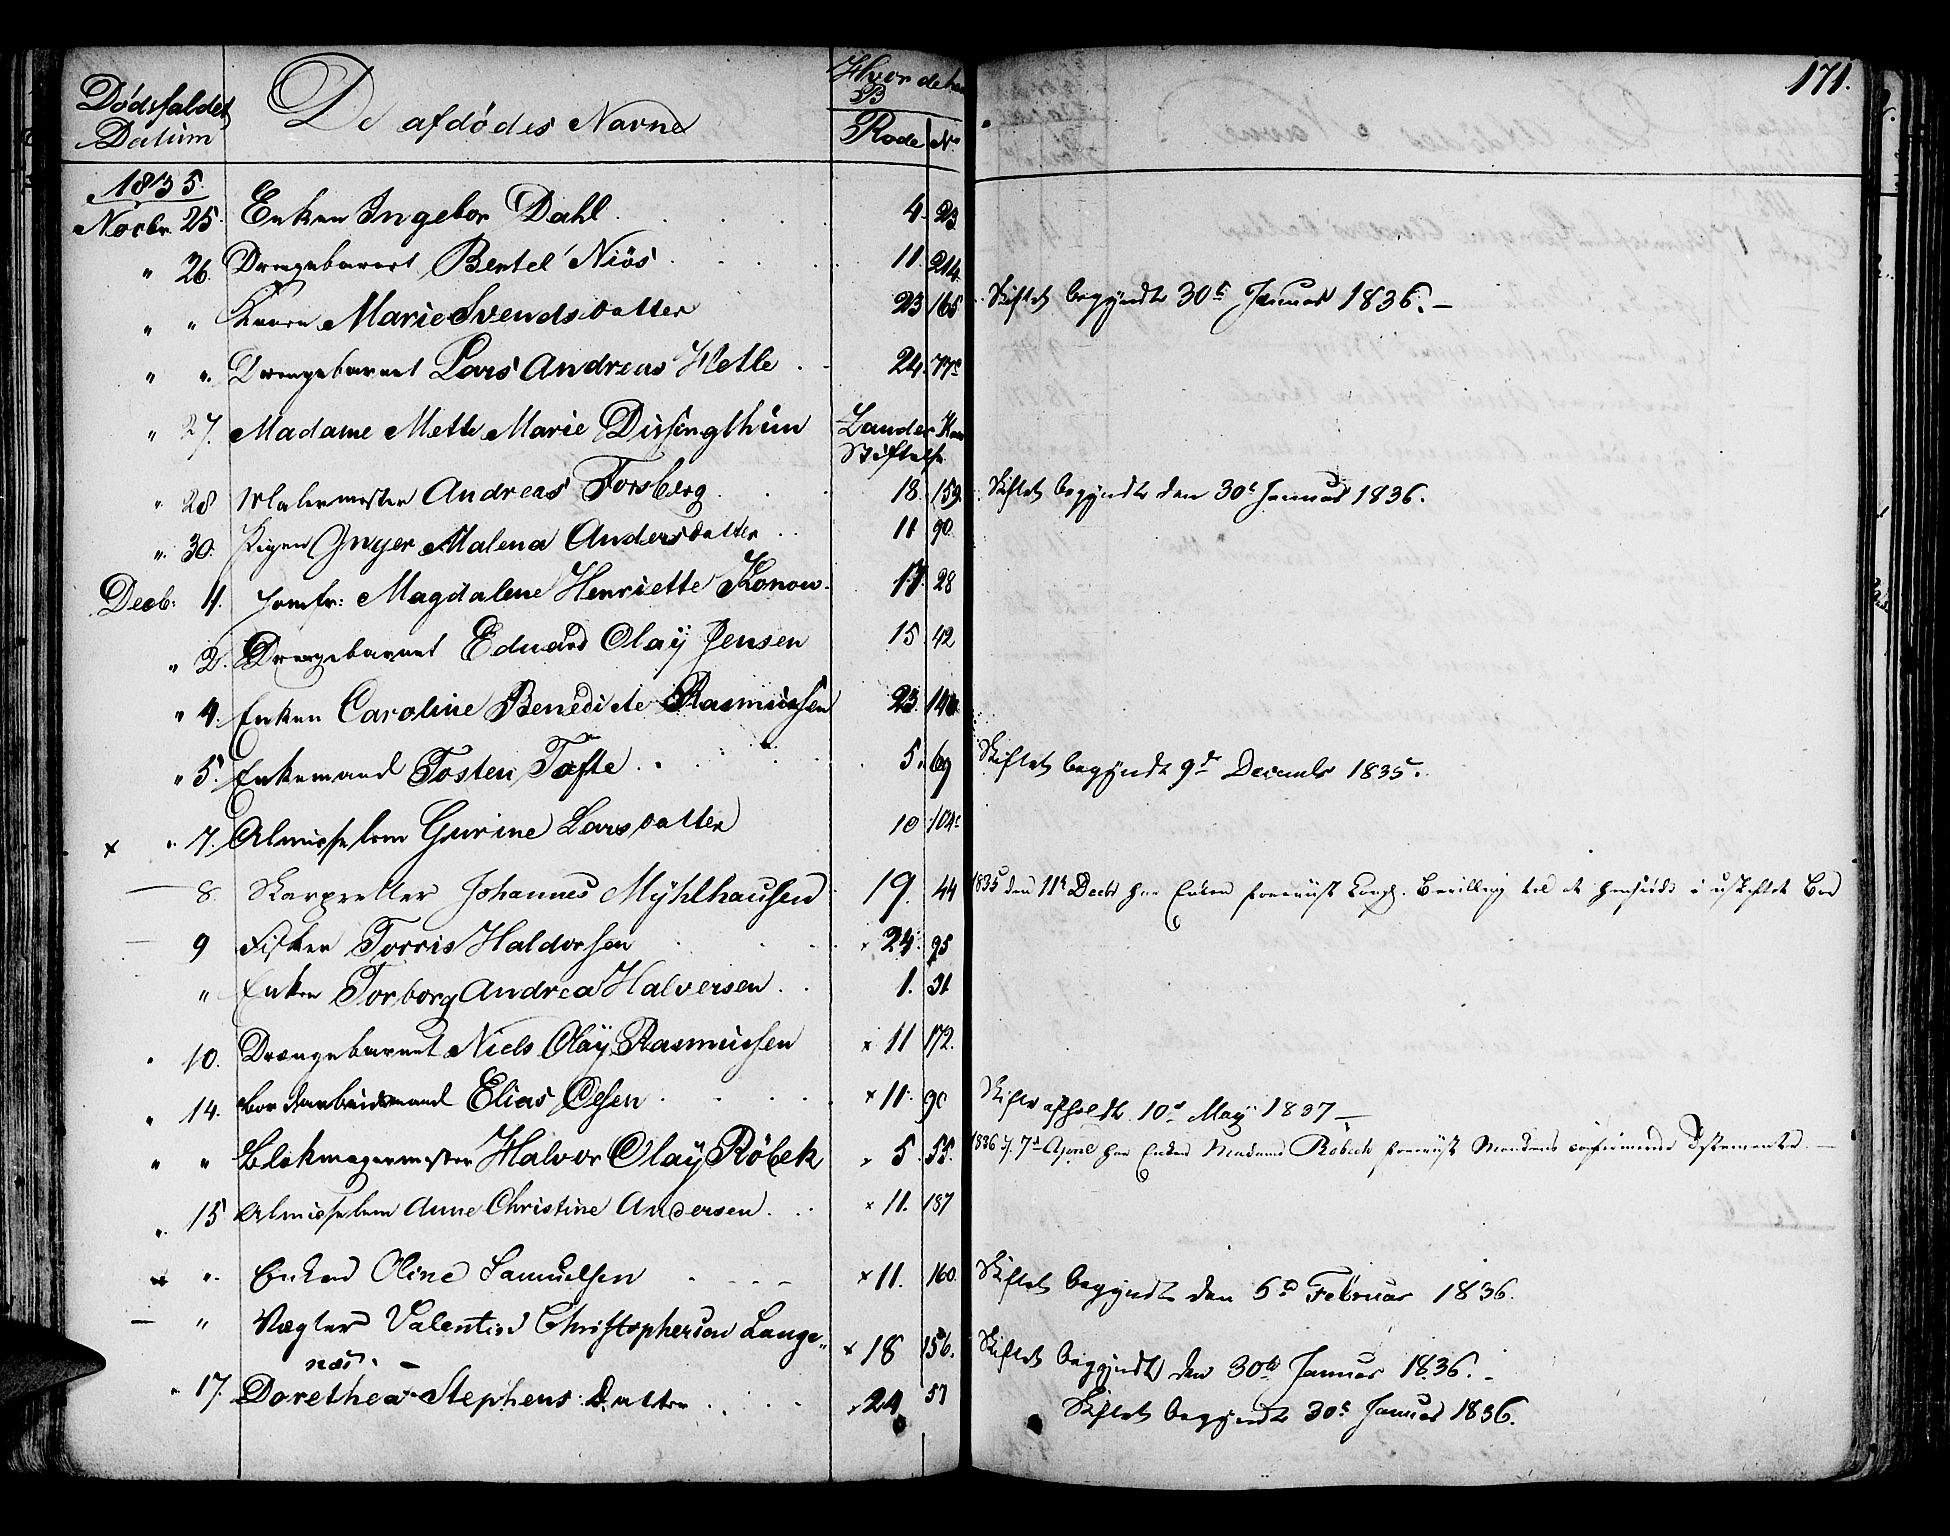 171.
Dødsfaldet Datum De afdødes Navne Hvor
Rode No
1835.
Novbr. 25. Enken Ingebor Dahl 4. 23
" 26. Drengebarnet Bertel Niös 11. 214
" " Marie Svendsdatter 23 165 Skiftet begyndt 30t Januar 1836.—
" " Drengebarnet Lars Andreas Hetle 24. 77c
" 27. Madame Mette Marie Düssingthun
Stiftelse
" 28 Malermester Andreas Forsberg 18. 159 Skiftet begyndt den 30t Januar 1836.
" 30. Pigen Inger Malena Andersdatter 11 90.
Decb: 1. Jomfr: Magdalene Henriette Konow 17. 28
" 2. Drengebarnet Eduard Olaÿ Jensen 15. 42
" 4. Enken Caroline Benedicte Rasmussen 23.
" 5. Enkemand Tosten Tofte 5. 69 Skiftet begyndt 9de Decembr 1835.
x " 7. Almisselem Gurine Larsdatter 10 104c
— 8. Skarpretter Johannes Mÿhlhausen 19. 44 1835 den 11t Decbr har Enken foreviist Kongl. Bevilling til at hensidde i uskiftet Boe
— 9 Fisker Torris Haldorsen x 24. 95
" Enken Torborg Andrea Halversen 1. 31
" 10. Drængebarnet Niels Olaÿ Rasmussen x 11 172.
" 14. Elias Olsen x 11. 90 Skifte afholdt 10de Maÿ 1837 —
" " Blokmagermester Halvor Olaÿ Röbek 5. 55. 1836 d. 7de April har Enken Madame Röbeck foreviist Mandens confirmerede Testamente. —
" 15 Almisselem Anne Christine Andersen x 11. 187
" Enken Oline Samuelsen x 11. 160. Skiftet begyndt den 5d Februar 1836.
— " Vægter Valentin Christophersen Lange-
næs. — x 18 156. Skiftet begyndt den 30te Januar 1836. -
" 17. Dorethea Stephens Datter 24 57 Skiftet begyndt 30t Januar 1836.